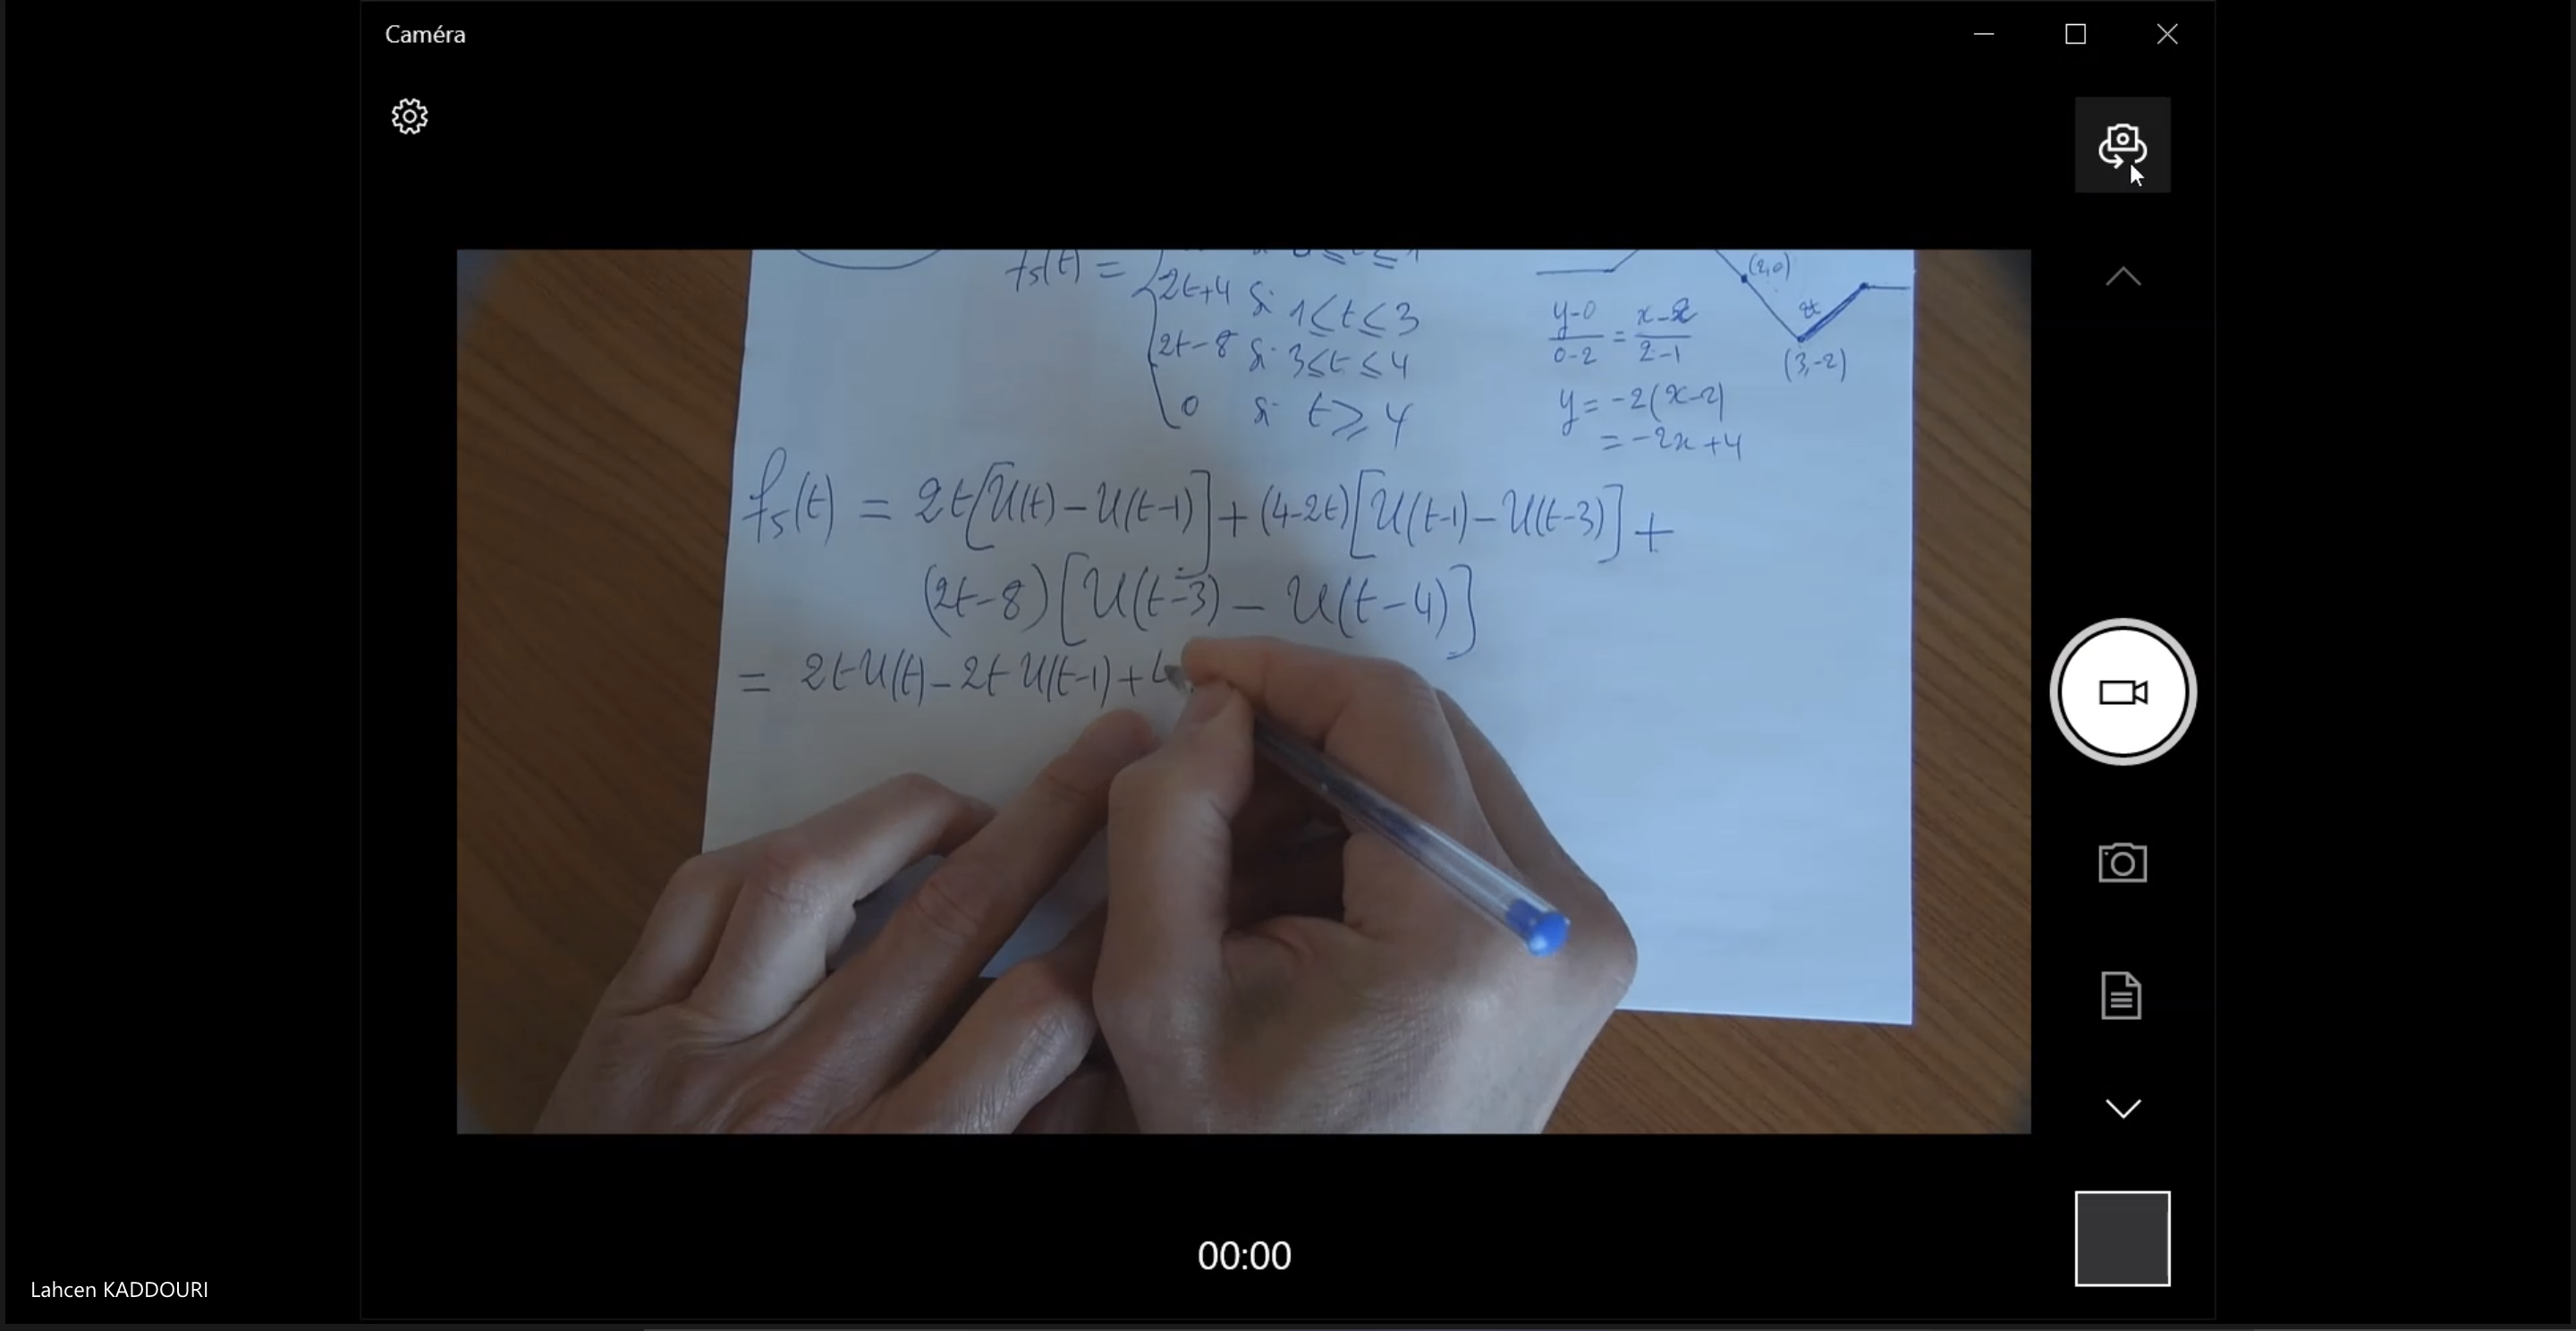 Caméra
f₅(t) =
2t+4 si 1≤t≤3
2t-8 si 3≤t≤4
0 si t≥4
(2,0)
2t
(3,-2)
y-0/0-2 = x-2/2-1
y = -2(x-2)
= -2x+4
f₅(t) = 2t[U(t)-U(t-1)]+(4-2t)[U(t-1)-U(t-3)]+
(2t-8)[U(t-3)-U(t-4)]
= 2tU(t)-2tU(t-1)+4
00:00
Lahcen KADDOURI